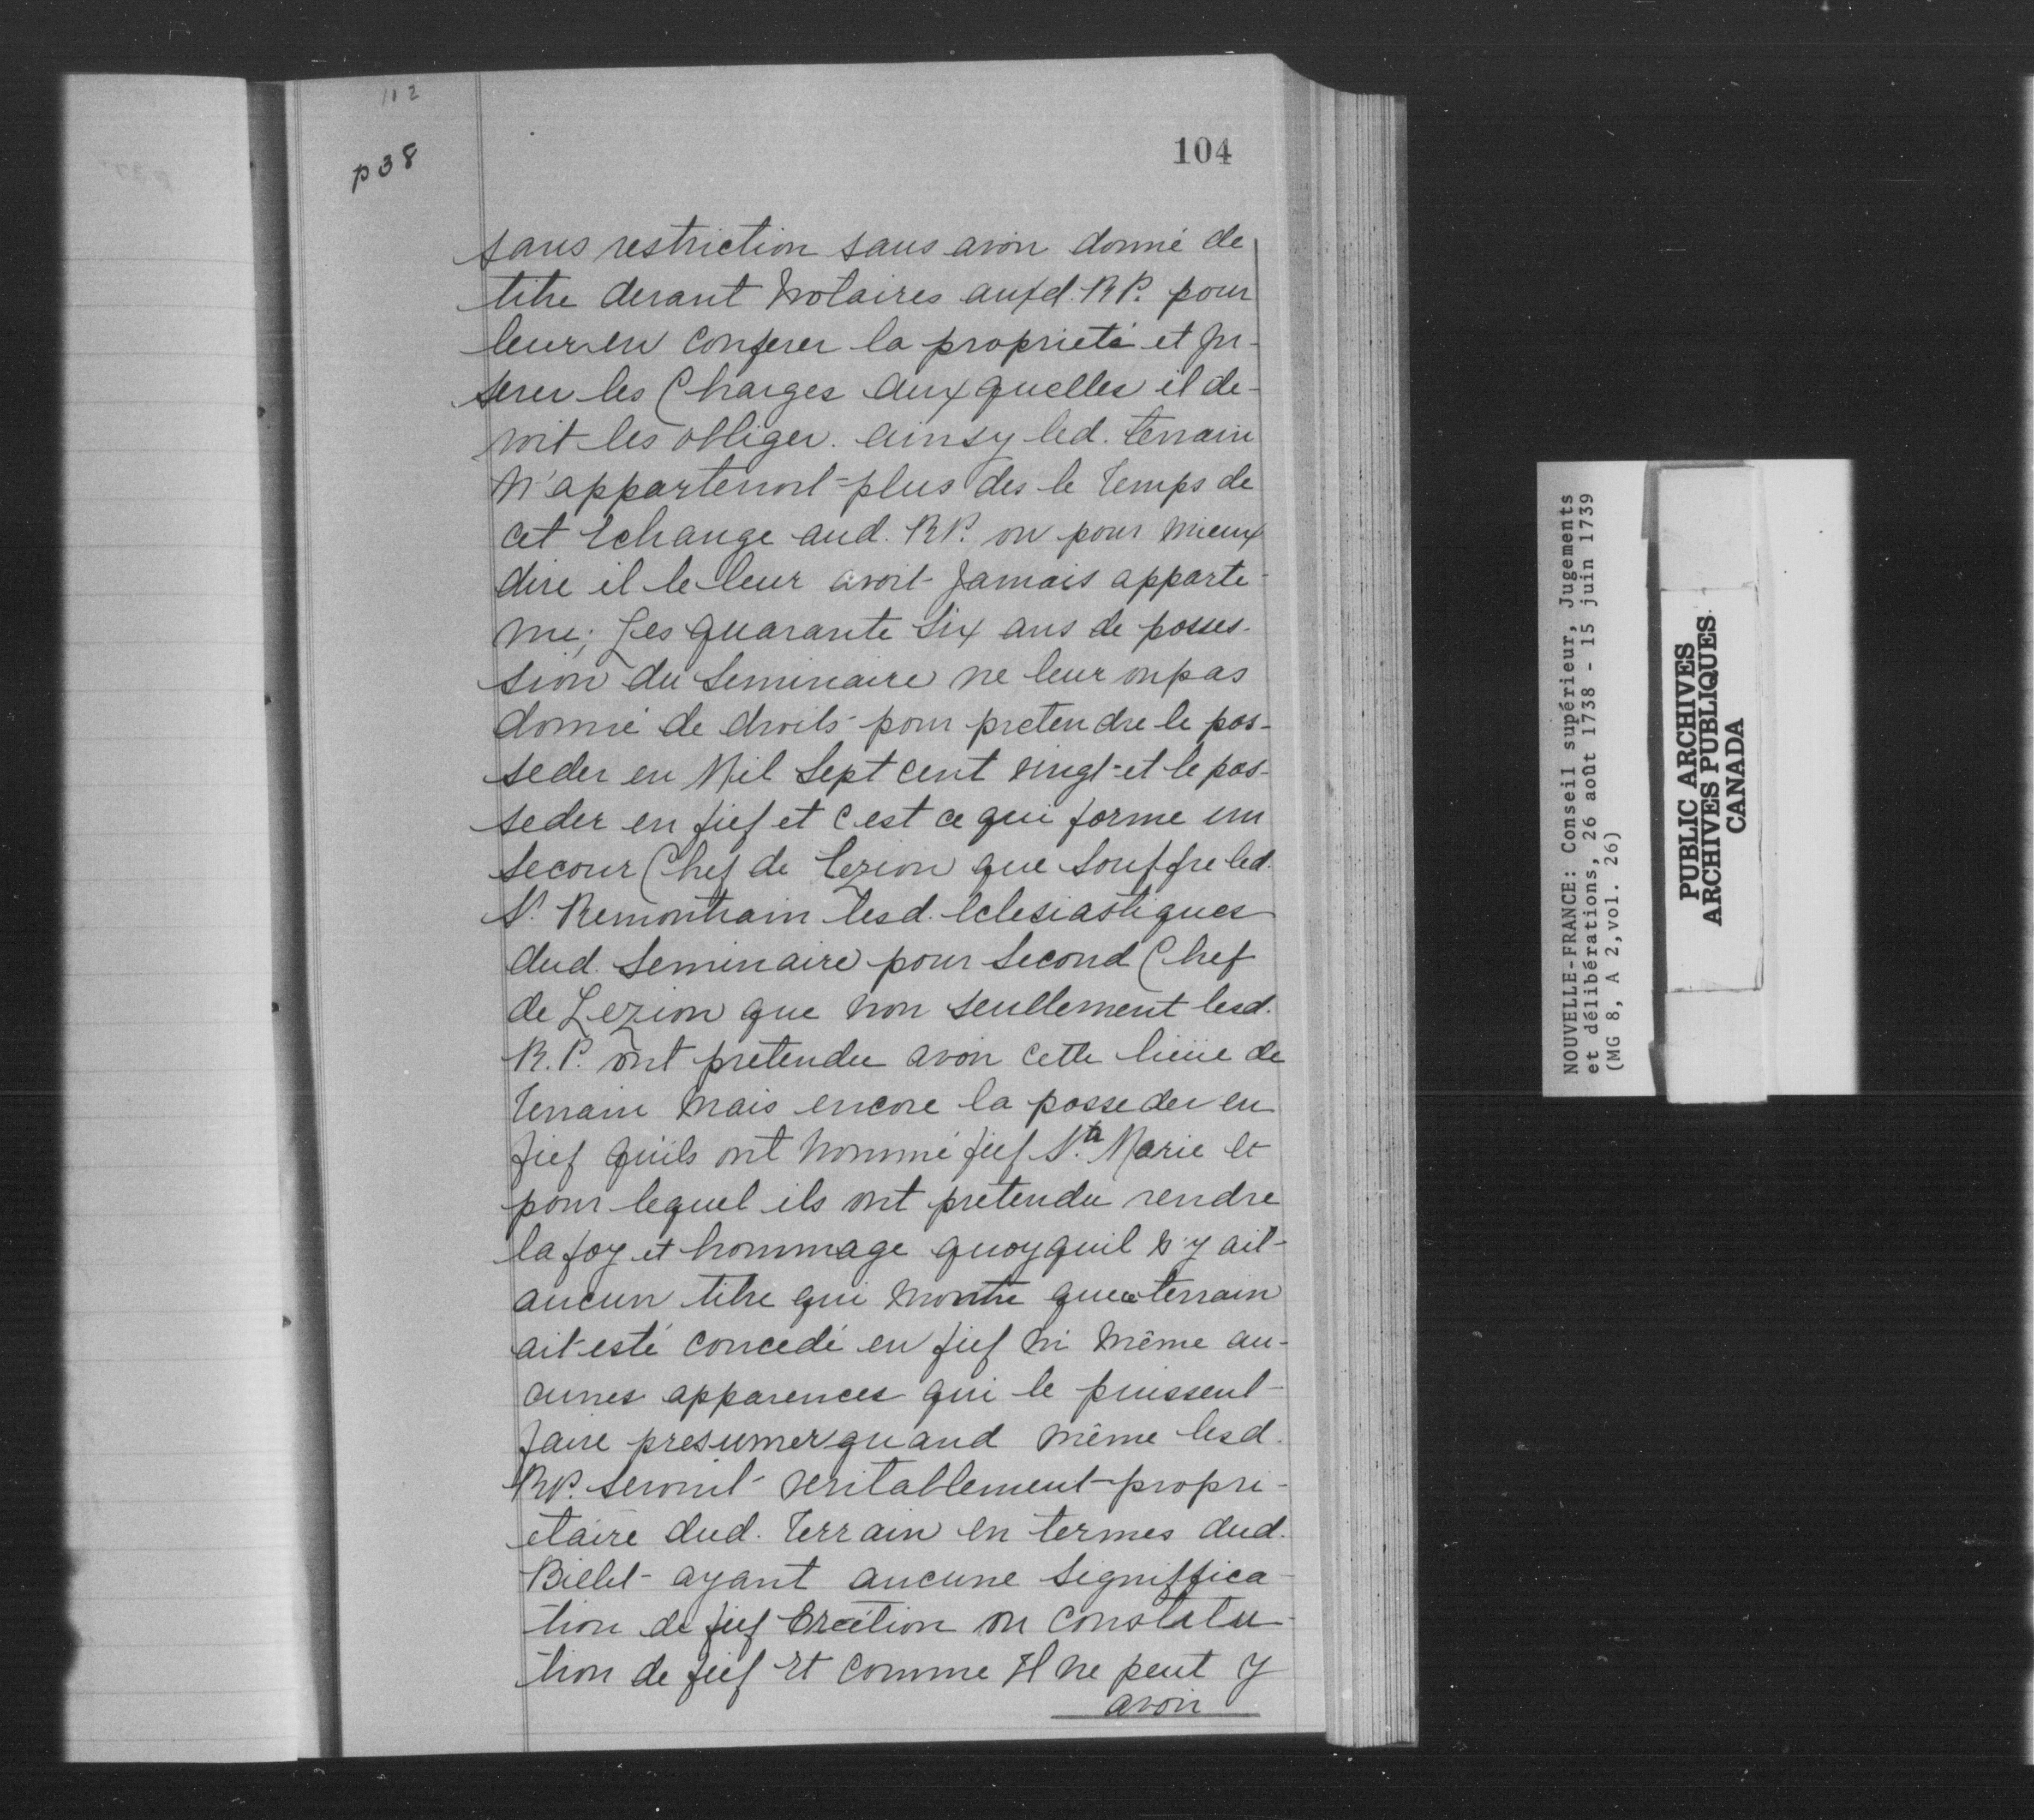 112
p 38
104
sans restriction sans avoir donné de
titre devant Notaires auxd. RP. pour
leur en conferer la proprieté et In-
serer les Charges auxquelles il de-
voit les obliger. ainsy led. terrain
N'appartenoit plus des le temps de
cet Echange aud. RP. ou pour mieux
dire il le leur avoit Jamais apparte-
nu; Les quarante Six ans de posses-
sion du Seminaire ne leur on pas
donné de droits pour pretendre le pos-
seder en Mil Sept cent vingt et le pos-
seder en fief et c'est ce qui forme un
secour Chef de lezion que Souffre led.
Sr. Remontrain lesd. Eclesiastiques
dud. Seminaire pour Second Chef
de Lezion que non seullement lesd.
R.P. ont pretendu avoir cette lieüe de
terrain mais encore la posseder en
fief qu'ils ont nommé fief Ste. Marie et
pour lequel ils ont pretendu rendre
la foy et hommage quoyquil n'y ait
aucun titre qui montre que ce terrain
ait esté concedé en fief ni même au-
cunes apparences qui le puissent
faire presumer quand même lesd.
RP. seroient veritablement propri-
etaire dud. Terrain en termes dud.
Billet ayant aucune Signiffica-
tion de fief Erection ou constitu-
tion de fief Et comme Il ne peut y
avoir
NOUVELLE-FRANCE: Conseil supérieur, Jugements
et délibérations, 26 août 1738 - 15 juin 1739
(MG 8, A 2, vol. 26)
PUBLIC ARCHIVES
ARCHIVES PUBLIQUES
CANADA